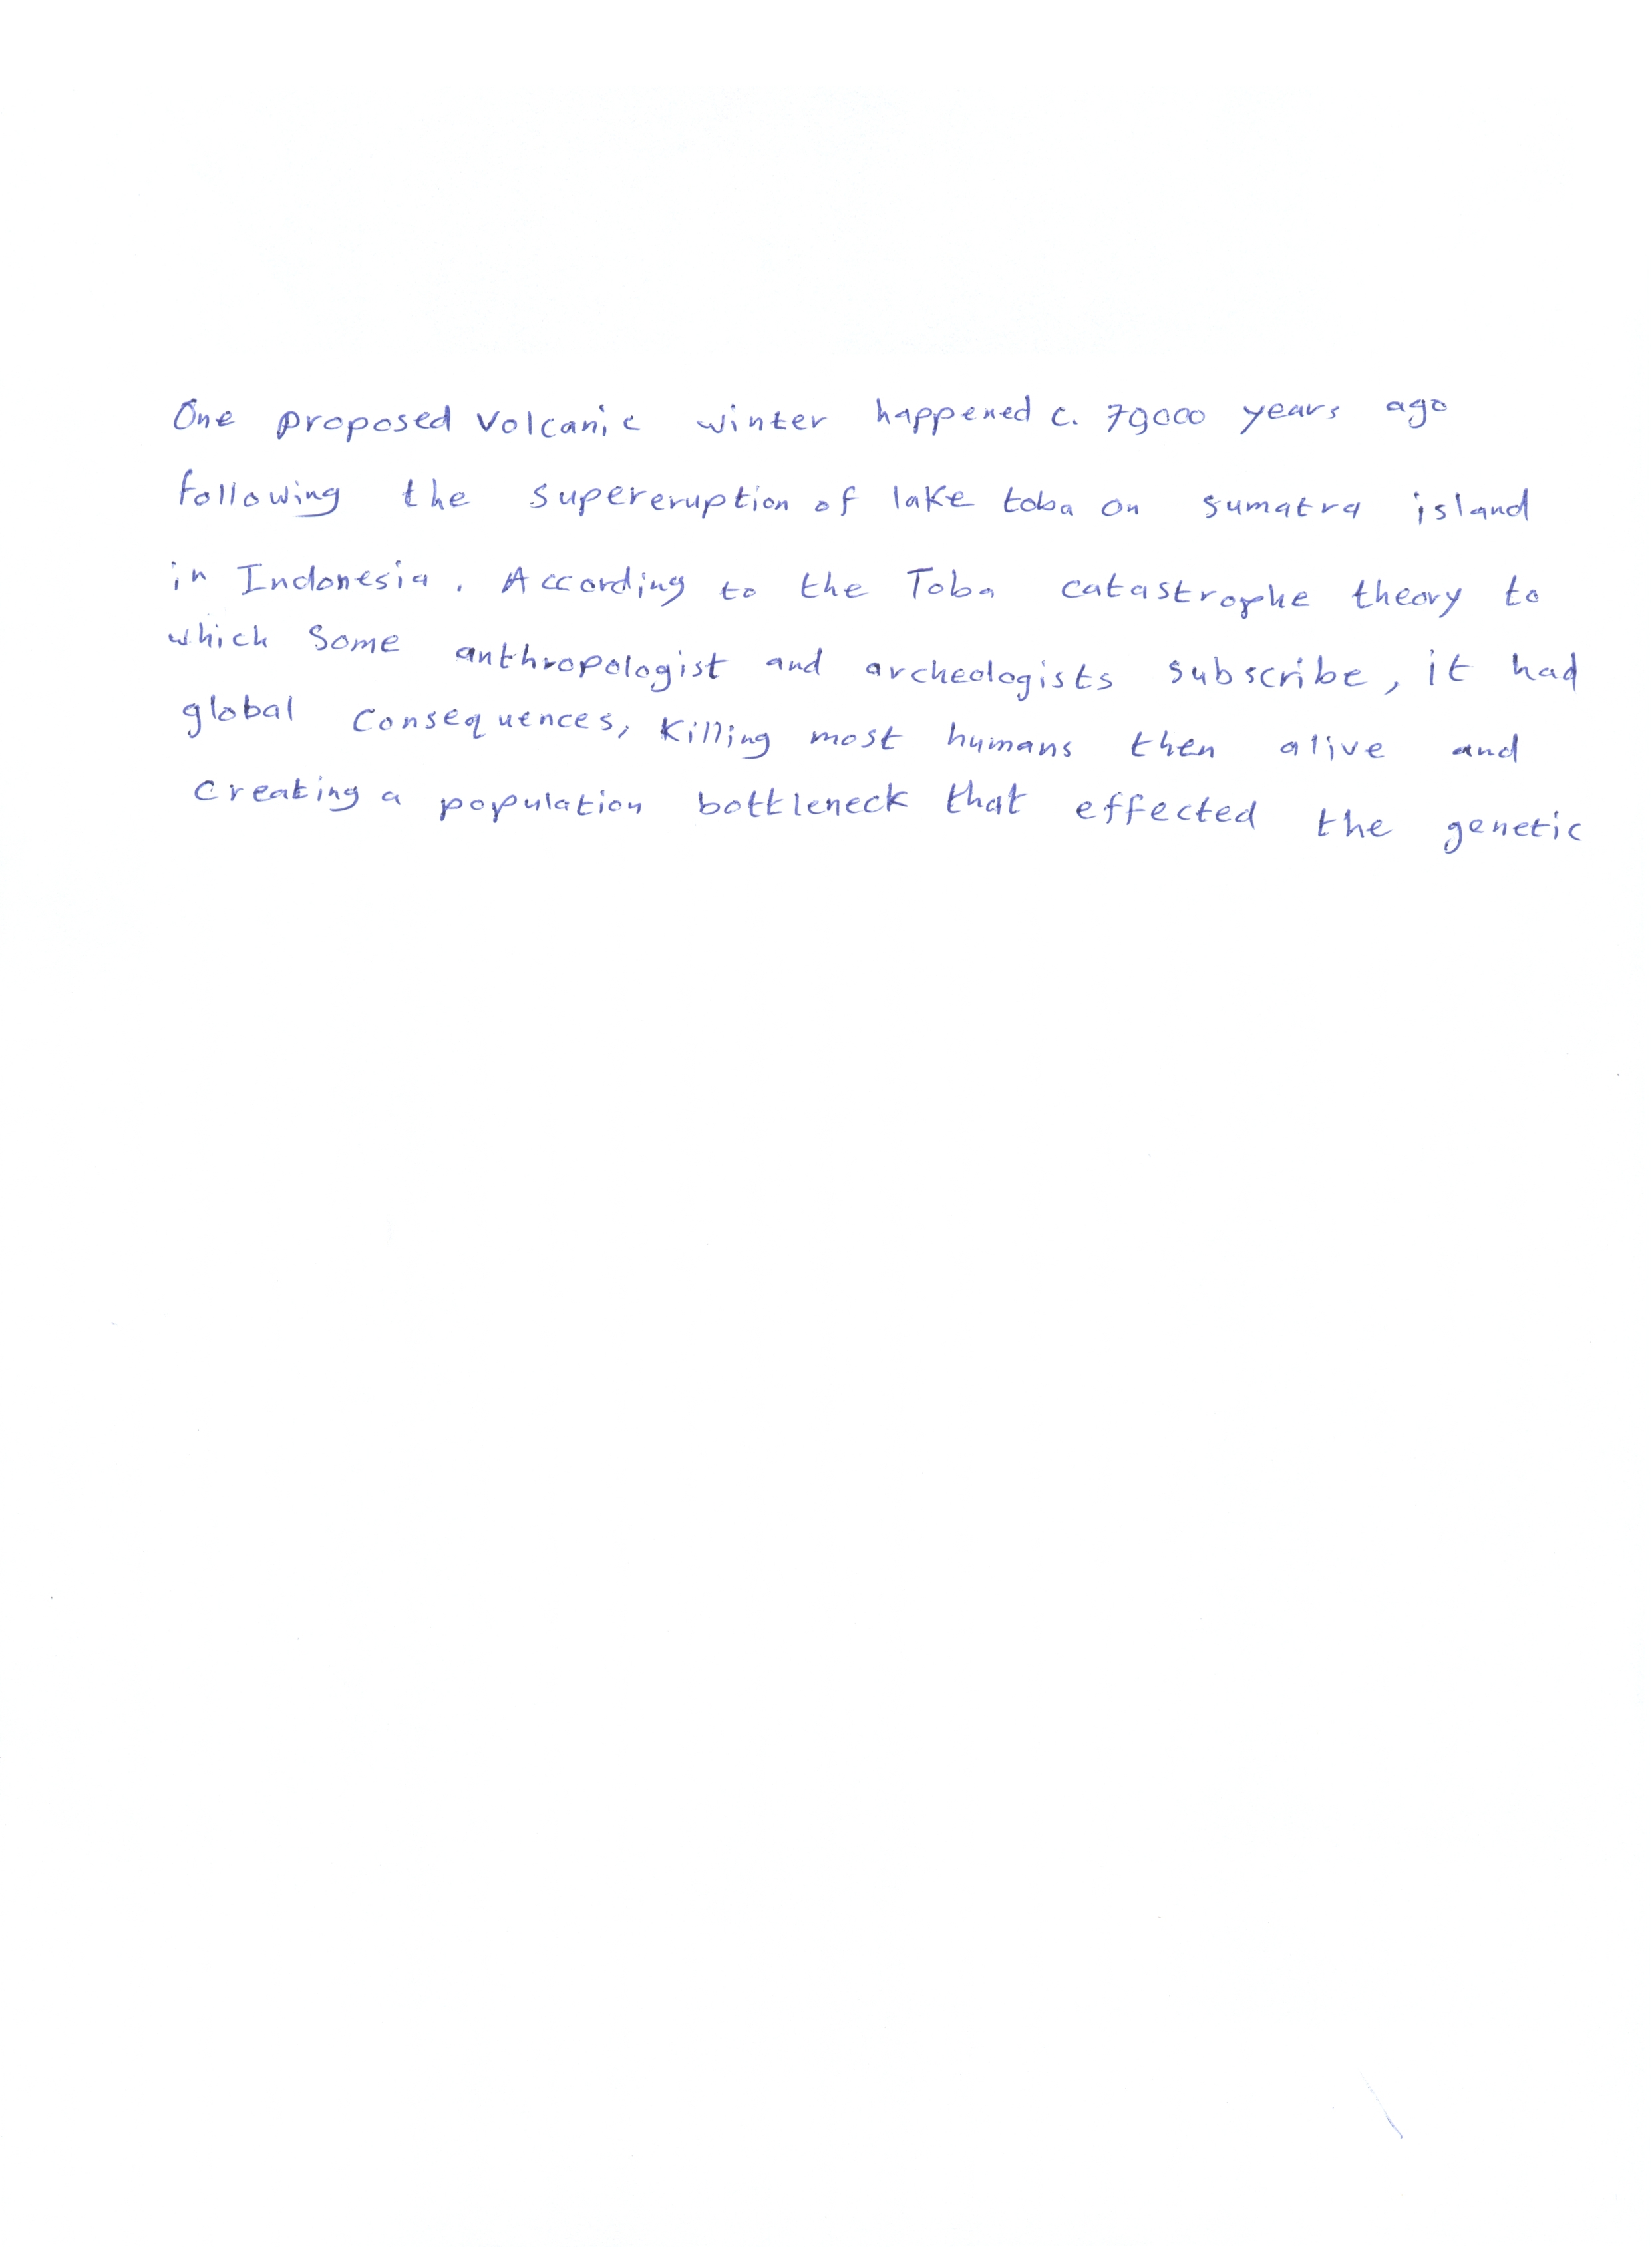 One proposed volcanic winter happened c. 79000 years ago
following the supereruption of lake toba on sumatra island
in Indonesia. According to the Toba catastrophe theory to
which some anthropologist and archeologists subscribe, it had
global consequences, killing most humans then alive and
creating a population bottleneck that effected the genetic